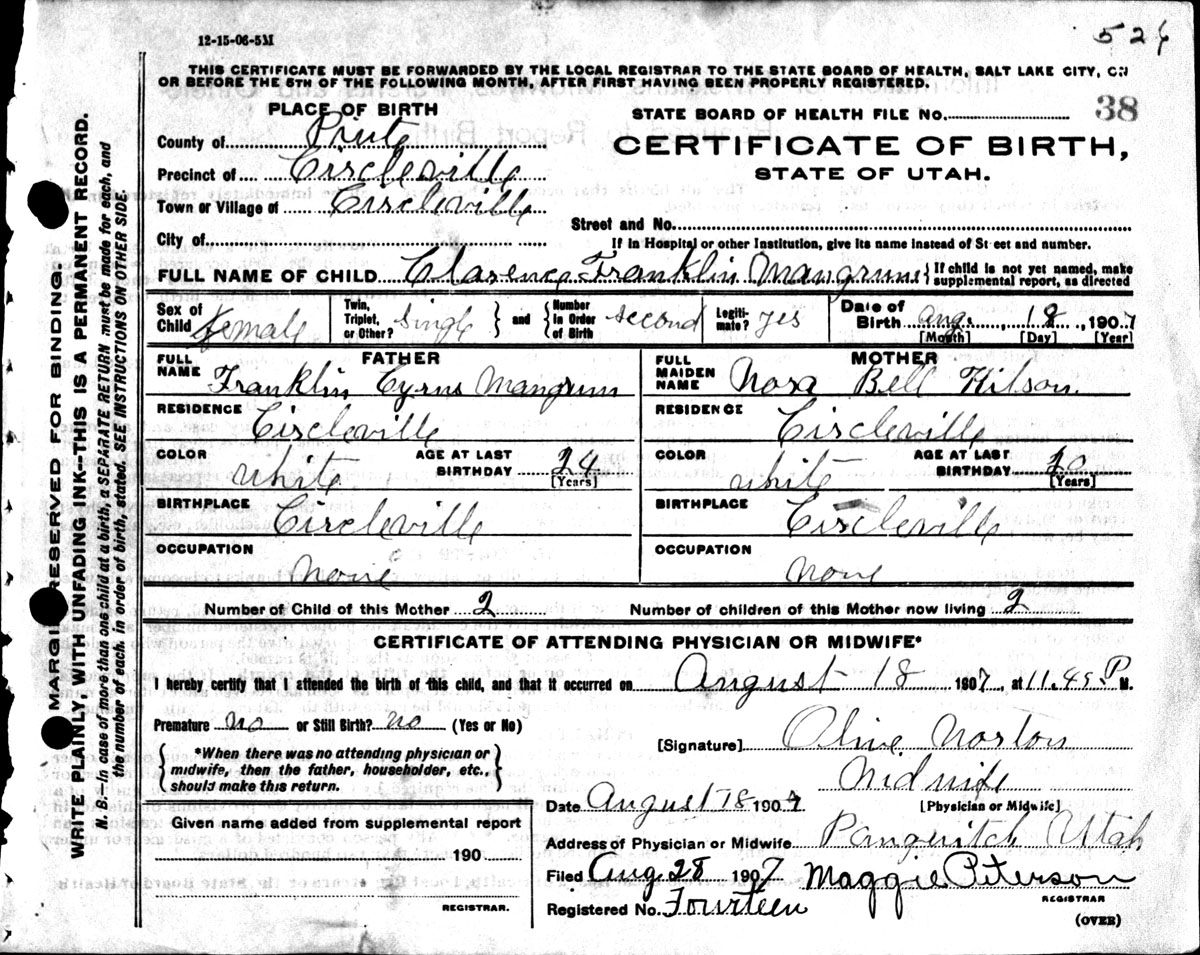 12-15-06-5M
526
THIS CERTIFICATE MUST BE FORWARDED BY THE LOCAL REGISTRAR TO THE STATE BOARD OF HEALTH, SALT LAKE CITY, ON
OR BEFORE THE 5TH OF THE FOLLOWING MONTH, AFTER FIRST HAVING BEEN PROPERLY REGISTERED.
PLACE OF BIRTH
STATE BOARD OF HEALTH FILE No. 38
County of Piute
CERTIFICATE OF BIRTH,
Precinct of Circleville
STATE OF UTAH.
Town or Village of Circleville
Street and No.
City of
If in Hospital or other Institution, give its name instead of Street and number.
FULL NAME OF CHILD Clarence Franklin Mangrum { If child is not yet named, make supplemental report, as directed
Sex of Child female Twin, Triplet, or Other? single } and { Number in Order of Birth second Legitimate? yes Date of Birth Aug. 18, 1907
[Month] [Day] [Year]
FATHER
FULL NAME Franklin Cyrus Mangrum
RESIDENCE Circleville
COLOR White AGE AT LAST BIRTHDAY 24 [Years]
BIRTHPLACE Circleville
OCCUPATION None
MOTHER
FULL MAIDEN NAME Nora Bell Kilson
RESIDENCE Circleville
COLOR white AGE AT LAST BIRTHDAY 20 [Years]
BIRTHPLACE Circleville
OCCUPATION None
Number of Child of this Mother 2 Number of children of this Mother now living 2
CERTIFICATE OF ATTENDING PHYSICIAN OR MIDWIFE*
I hereby certify that I attended the birth of this child, and that it occurred on August 18 1907, at 11.45 P M.
Premature no or Still Birth? no (Yes or No)
{ *When there was no attending physician or midwife, then the father, householder, etc., should make this return. }
[Signature] Olive Norton
Midwife
[Physician or Midwife]
Date August 18 1907
Given name added from supplemental report
190
REGISTRAR.
Address of Physician or Midwife Panguitch Utah
Filed Aug 28 1907 Maggie Peterson
REGISTRAR
Registered No. Fourteen
(OVER)
MARGIN RESERVED FOR BINDING.
WRITE PLAINLY, WITH UNFADING INK—THIS IS A PERMANENT RECORD.
N. B.—In case of more than one child at a birth, a SEPARATE RETURN must be made for each, and
the number of each, in order of birth, stated. SEE INSTRUCTIONS ON OTHER SIDE.